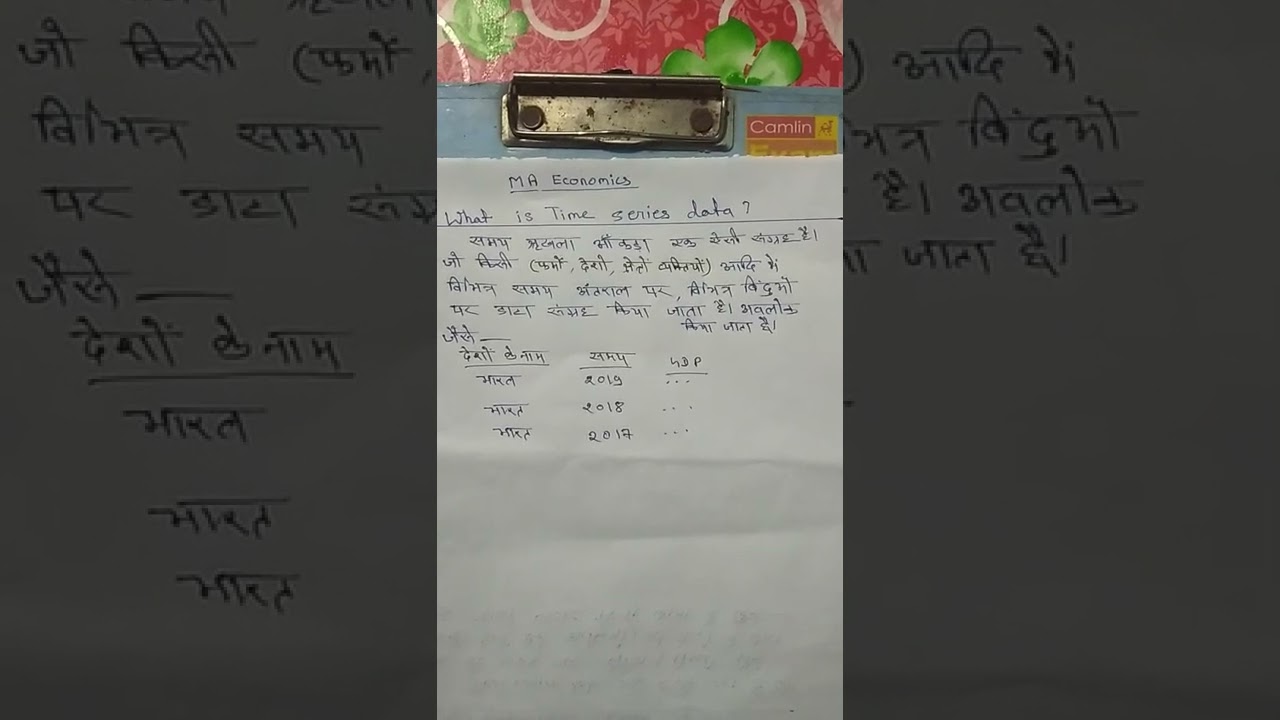 Camlin
MA Economics
What is Time series data?
समय श्रृंखला आँकड़ा एक ऐसी संग्रह है।
जो किसी (फर्मों, देशो, व्यक्तियों) आदि में
विभिन्न समय अंतराल पर, विभिन्न बिंदुओं
पर डाटा संग्रह किया जाता है। अवलोक
किया जाता है।
जैसे —
देशों के नाम समय GDP
भारत 2019 ...
भारत 2018 ....
भारत 2017 ...